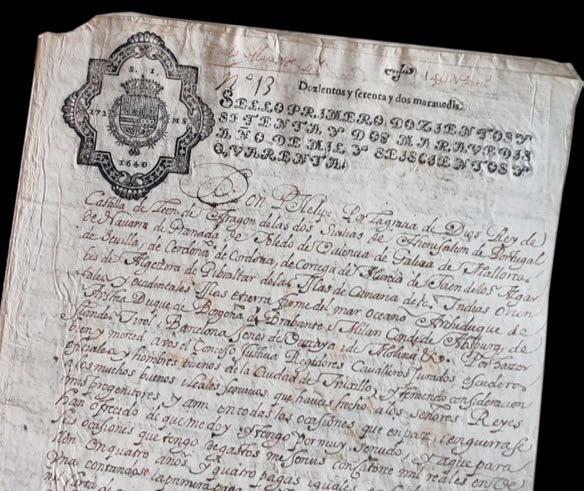 S. I.
272 MS
1640
Nº 13
Dozientos y setenta y dos marauedis.
SELLO PRIMERO, DOZIENTOS Y
SETENTA Y DOS MARAVEDIS
AÑO DE MIL Y SEISCIENTOS Y
QVARENTA.
DON Phelipe Por la graçia de Dios Rey de
Castilla de Leon de Aragon de las dos Sicilias de Hierusalem de Portugal
de Navarra de Granada de Toledo de Valencia de Galizia de Mallorca
de Sevilla de Cerdeña de Cordova de Corcega de Murcia de Jaen de los Algar
bes de Algezira de Gibraltar de las Islas de Canaria de las Indias Orien
tales y occidentales Islas y tierra firme del mar oceano Archiduque de
Austria Duque de Borgoña de Brabante y Milan Conde de Abspurg de
Flandes Tirol y Barcelona Señor de Vizcaya y de Molina &c. Por hazer
bien y merced a vos el Concejo Justicia Regidores Cavalleros Jurados escuderos
officiales y hombres buenos de la Ciudad de Truxillo y teniendo consideracion
a los muchos buenos y leales servicios que haveis fecho a los señores Reyes
mis progenitores y a mi en todas las ocasiones que en paz y en guerra se
han ofrecido de que me doy y tengo por muy servido y a que para
las ocasiones que tengo de gastos me servis con catorce mil reales en
en cinquatro años y quatro pagas iguales
contandose la primera paga